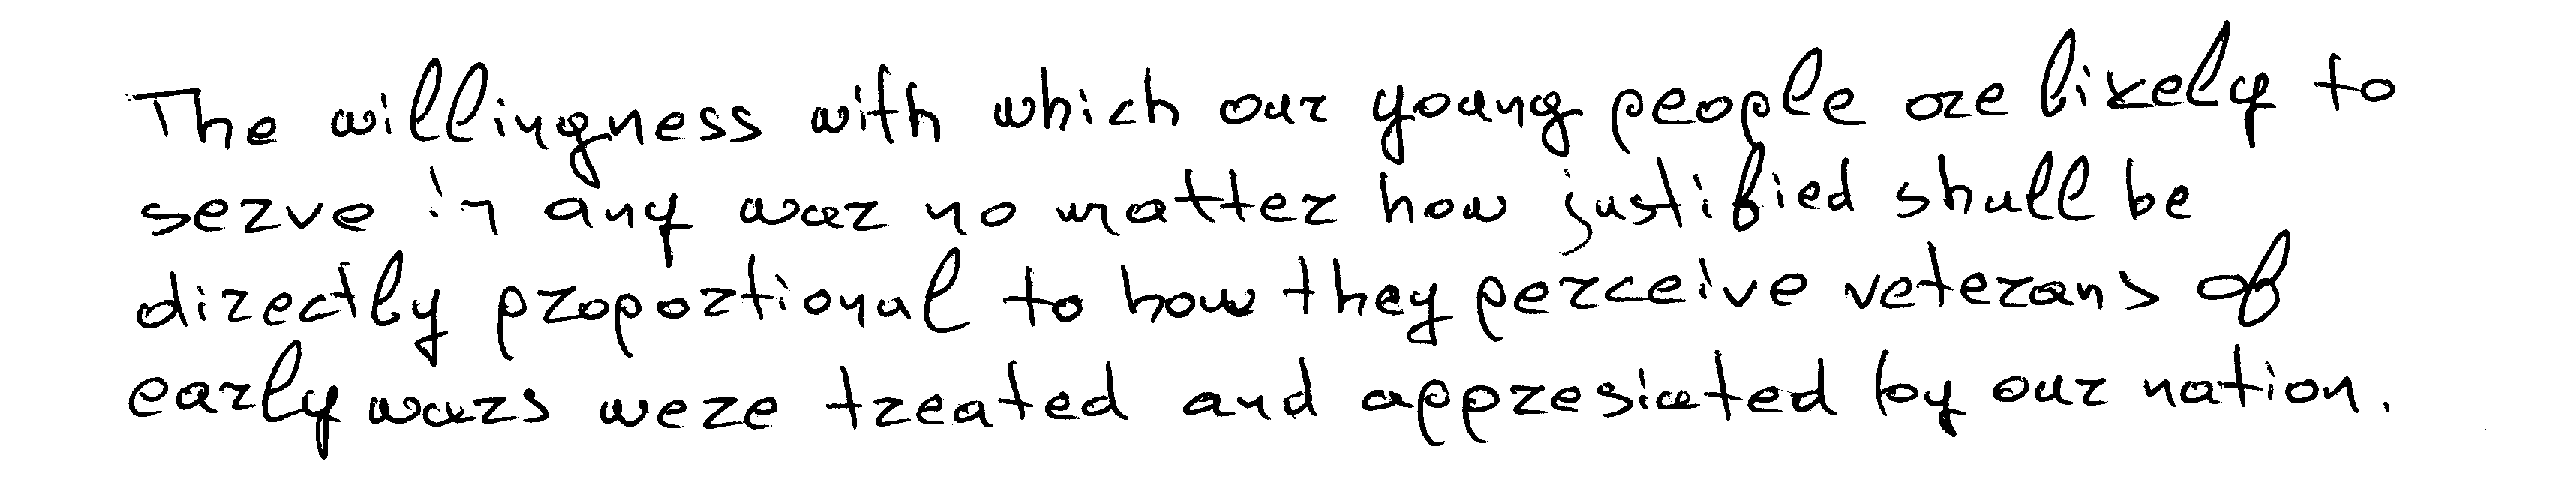 The willingness with which our young people are likely to
serve in any war no matter how justified shall be
directly proportional to how they perceive veterans of
early wars were treated and appresiated by our nation.